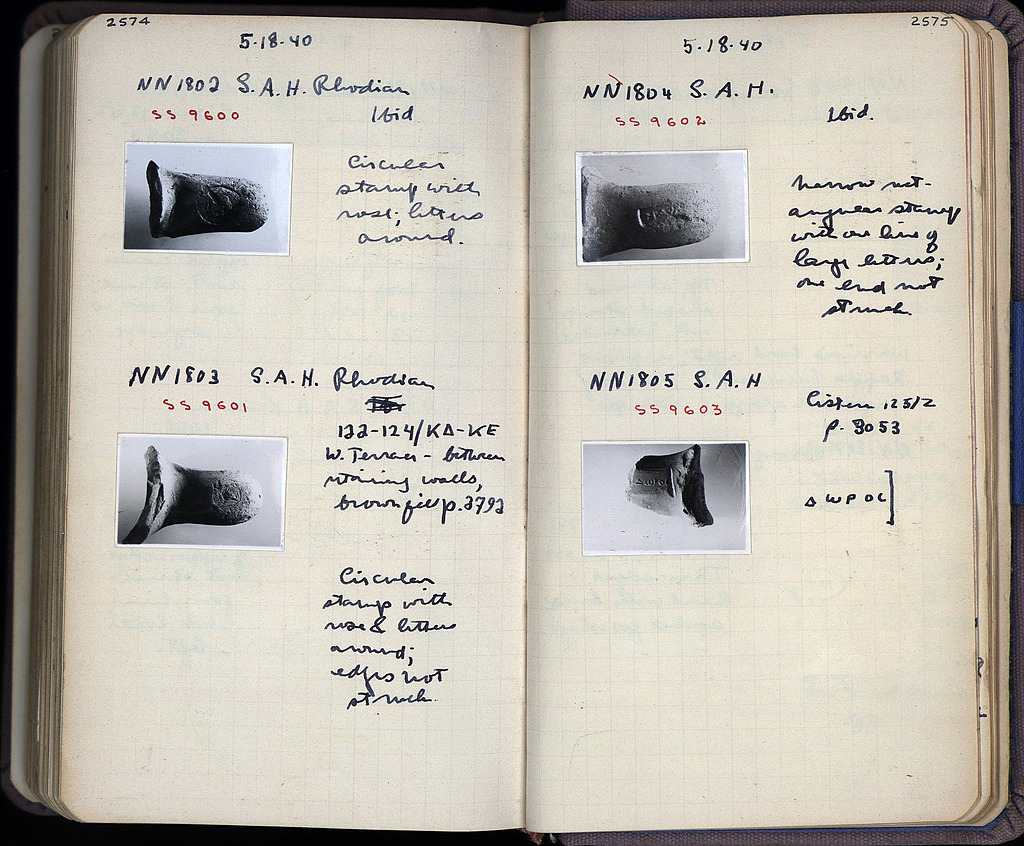 2574
5-18-40
NN1802 S.A.H. Rhodian
SS 9600
Ibid
Circular
stamp with
rose; letters
around.
NN1803 S.A.H. Rhodian
SS 9601
122-124/ΚΔ-ΚΕ
W. Terrace - between
retaining walls,
brown fill p. 2792
Circular
stamp with
rose & letters
around;
edges not
struck.
2575
5-18-40
NN1804 S.A.H.
SS 9602
Ibid.
Narrow rect-
angular stamp
with one line of
large letters;
one end not
struck.
NN1805 S.A.H
SS 9603
Cistern 125/Z
p. 3053
ΔWPOC]